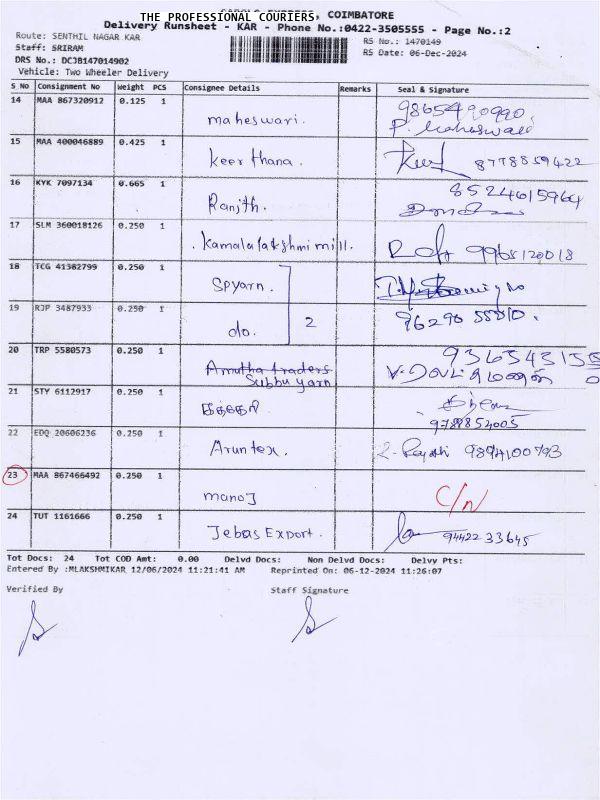 THE PROFESSIONAL COURIERS, COIMBATORE
Delivery Runsheet - KAR - Phone No.:0422-3505555 - Page No.:2
Route: SENTHIL NAGAR KAR
RS No.: 1470149
Staff: SRIRAM
RS Date: 06-Dec-2024
DRS No.: DCJB147014902
Vehicle: Two Wheeler Delivery
S No Consignment No Weight PCS Consignee Details Remarks Seal & Signature
14 MAA 867320912 0.125 1 maheswari. 9865490990
P. Maheswari
15 MAA 400046889 0.425 1 keerthana. 8778859422
16 KYK 7097134 0.665 1 Ranjth. 8524615964
17 SLM 360018126 0.250 1 kamalalakshmi mill. 9965120018
18 TCG 41382799 0.250 1 Spyarn.
19 RJP 3487933 0.250 1 do. 2 9629855010.
20 TRP 5580573 0.250 1 Amutha traders
Subbu yarn
21 STY 6112917 0.250 1 9788852005
22 EDQ 20606236 0.250 1 Arun tex. 9894100793
23 MAA 867466492 0.250 1 manoj C/N
24 TUT 1161666 0.250 1 Jebas Export. 9442233645
Tot Docs: 24 Tot COD Amt: 0.00 Delvd Docs: Non Delvd Docs: Delvy Pts:
Entered By :MLAKSHMIKAR 12/06/2024 11:21:41 AM Reprinted On: 06-12-2024 11:26:07
Verified By Staff Signature